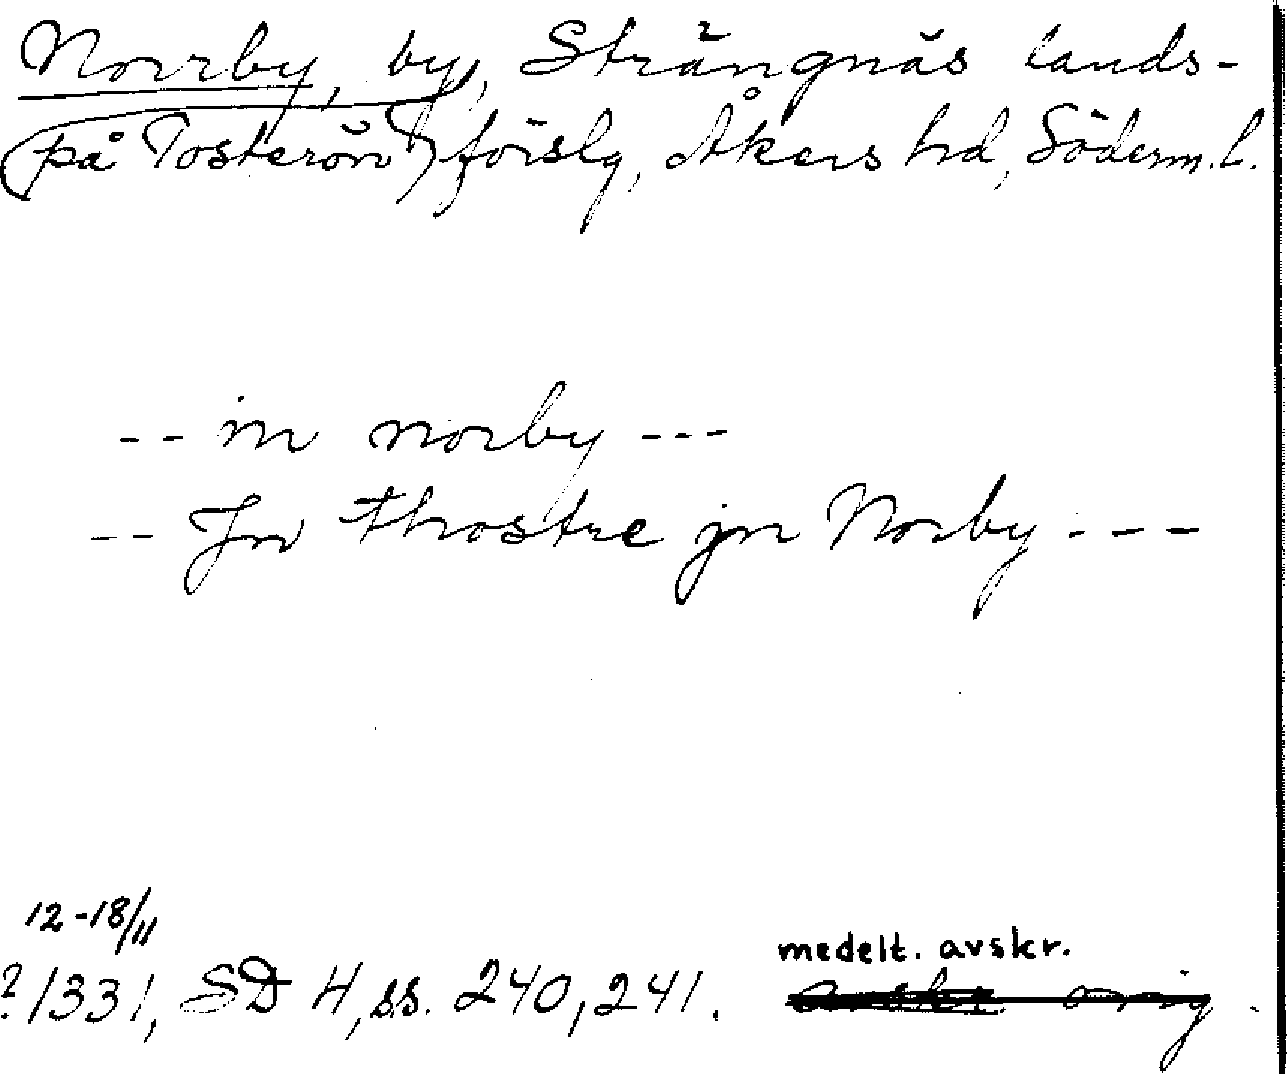 Norrby, by, Strängnäs lands-
(på Tosterön) förslg, Åkers hd, Söderm. l.
-- in norby ---
-- Jn thostre jn Norby ---
12-18/11
? 1331, SD 4, ss. 240, 241.
medelt. avskr.
orig.